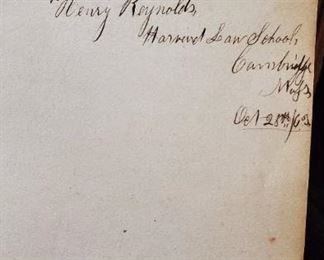 Henry Reynolds,
Harvard Law School,
Cambridge
Mass,
Oct 28th/63